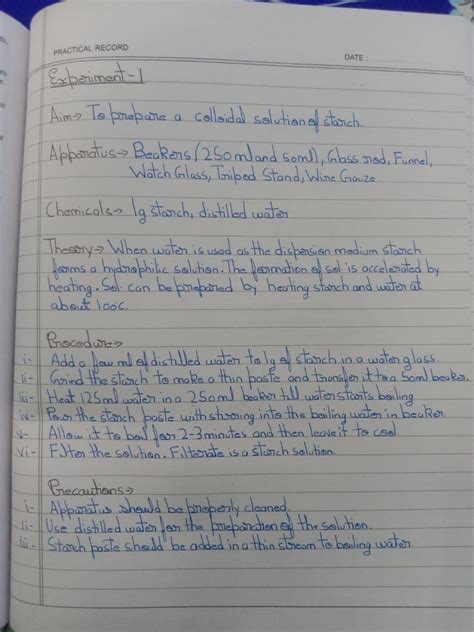 PRACTICAL RECORD
DATE
Experiment-1
Aim→ To prepare a colloidal solution of starch.
Apparatus→ Beakers (250ml and 50ml), Glass rod, Funnel,
Watch Glass, Tripod Stand, Wire Gauze
Chemicals→ 1g starch, distilled water
Theory→ When water is used as the dispersion medium starch
forms a hydrophilic solution. The formation of sol is accelerated by
heating. Sol can be prepared by heating starch and water at
about 100c.
Procedure→
i- Add a few ml of distilled water to 1g of starch in a water glass.
ii- Grind the starch to make a thin paste and transfer it to a 50ml beaker.
iii- Heat 125ml water in a 250ml beaker till water starts boiling
iv- Pour the starch paste with stirring into the boiling water in beaker.
v- Allow it to boil for 2-3minutes and then leave it to cool.
vi- Filter the solution. Filterate is a starch solution.
Precautions→
i- Apparatus should be properly cleaned.
ii- Use distilled water for the preparation of the solution.
iii- Starch paste should be added in a thin stream to boiling water.